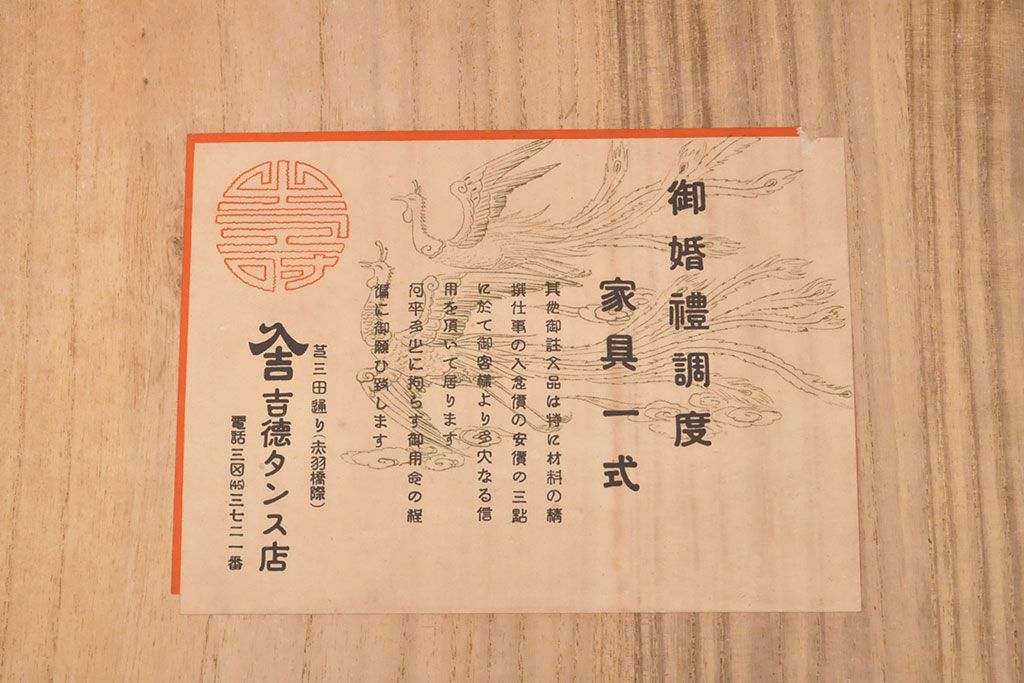 御婚禮調度
家具一式
其他御註文品は特に材料の精
撰仕事の入念價の安價の三點
に於て御客樣より多大なる信
用を頂いて居ります
何卒多少に拘らず御用命の程
偏に御願ひ致します
芝三田通り(赤羽橋際)
吉 吉德タンス店
電話三田(45)三七二一番